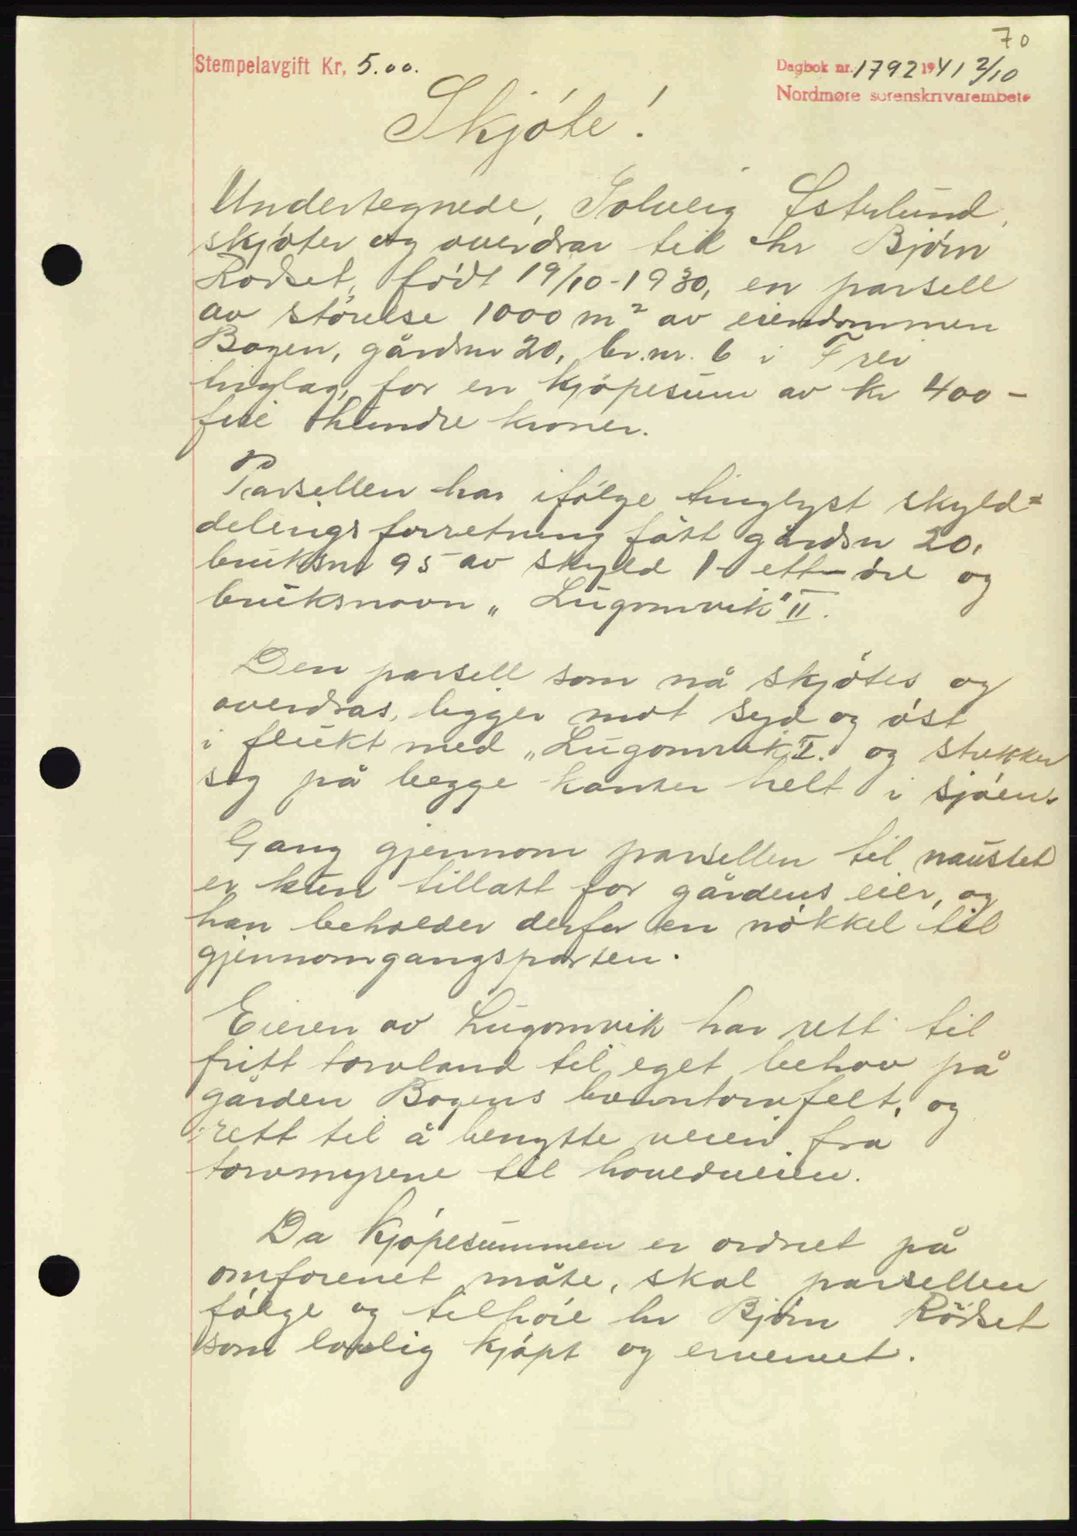 70
Stempelavgift Kr. 5.00.
Dagbok nr. 1792 1941 2/10
Nordmøre sorenskrivarembete
Skjøte!
Undertegnede, Solveig Østerlund,
skjøter og overdrar til hr Bjørn
Rødset, født 19/10-1930, en parsell
av størelse 1000 m² av eiendommen
Bogen, gårdsnr 20, br.nr. 6 i Frei
tinglag, for en kjøpesum av kr 400-
fire hundre kroner.
Parsellen har ifølge tinglyst skyld=
delingsforretning fått gårdsnr 20,
bruksnr 95 av skyld 1- ett- øre og
bruksnavn „Lugomvik" II.
Den parsell som nå skjøtes og
overdras, ligger mot syd og øst
i flukt med „Lugomvik" I. og strekker
sig på begge kanter helt i sjøen.
Gang gjennom parsellen til naustet
er kun tillatt for gårdens eier, og
han beholder derfor en nøkkel til
gjennomgangsporten.
Eieren av Lugomvik har rett til
fritt torvland til eget behov på
gården Bogens brenntorvfelt, og
rett til å benytte veien fra
torvmyrene til hovedveien.
Da kjøpesummen er ordnet på
omforenet måte, skal parsellen
følge og tilhøre hr Bjørn Rødset
som lovlig kjøpt og ervervet.